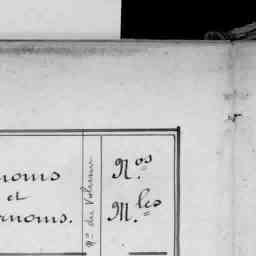 noms
et
rnoms.
Nº du Volume
Nos
Mles